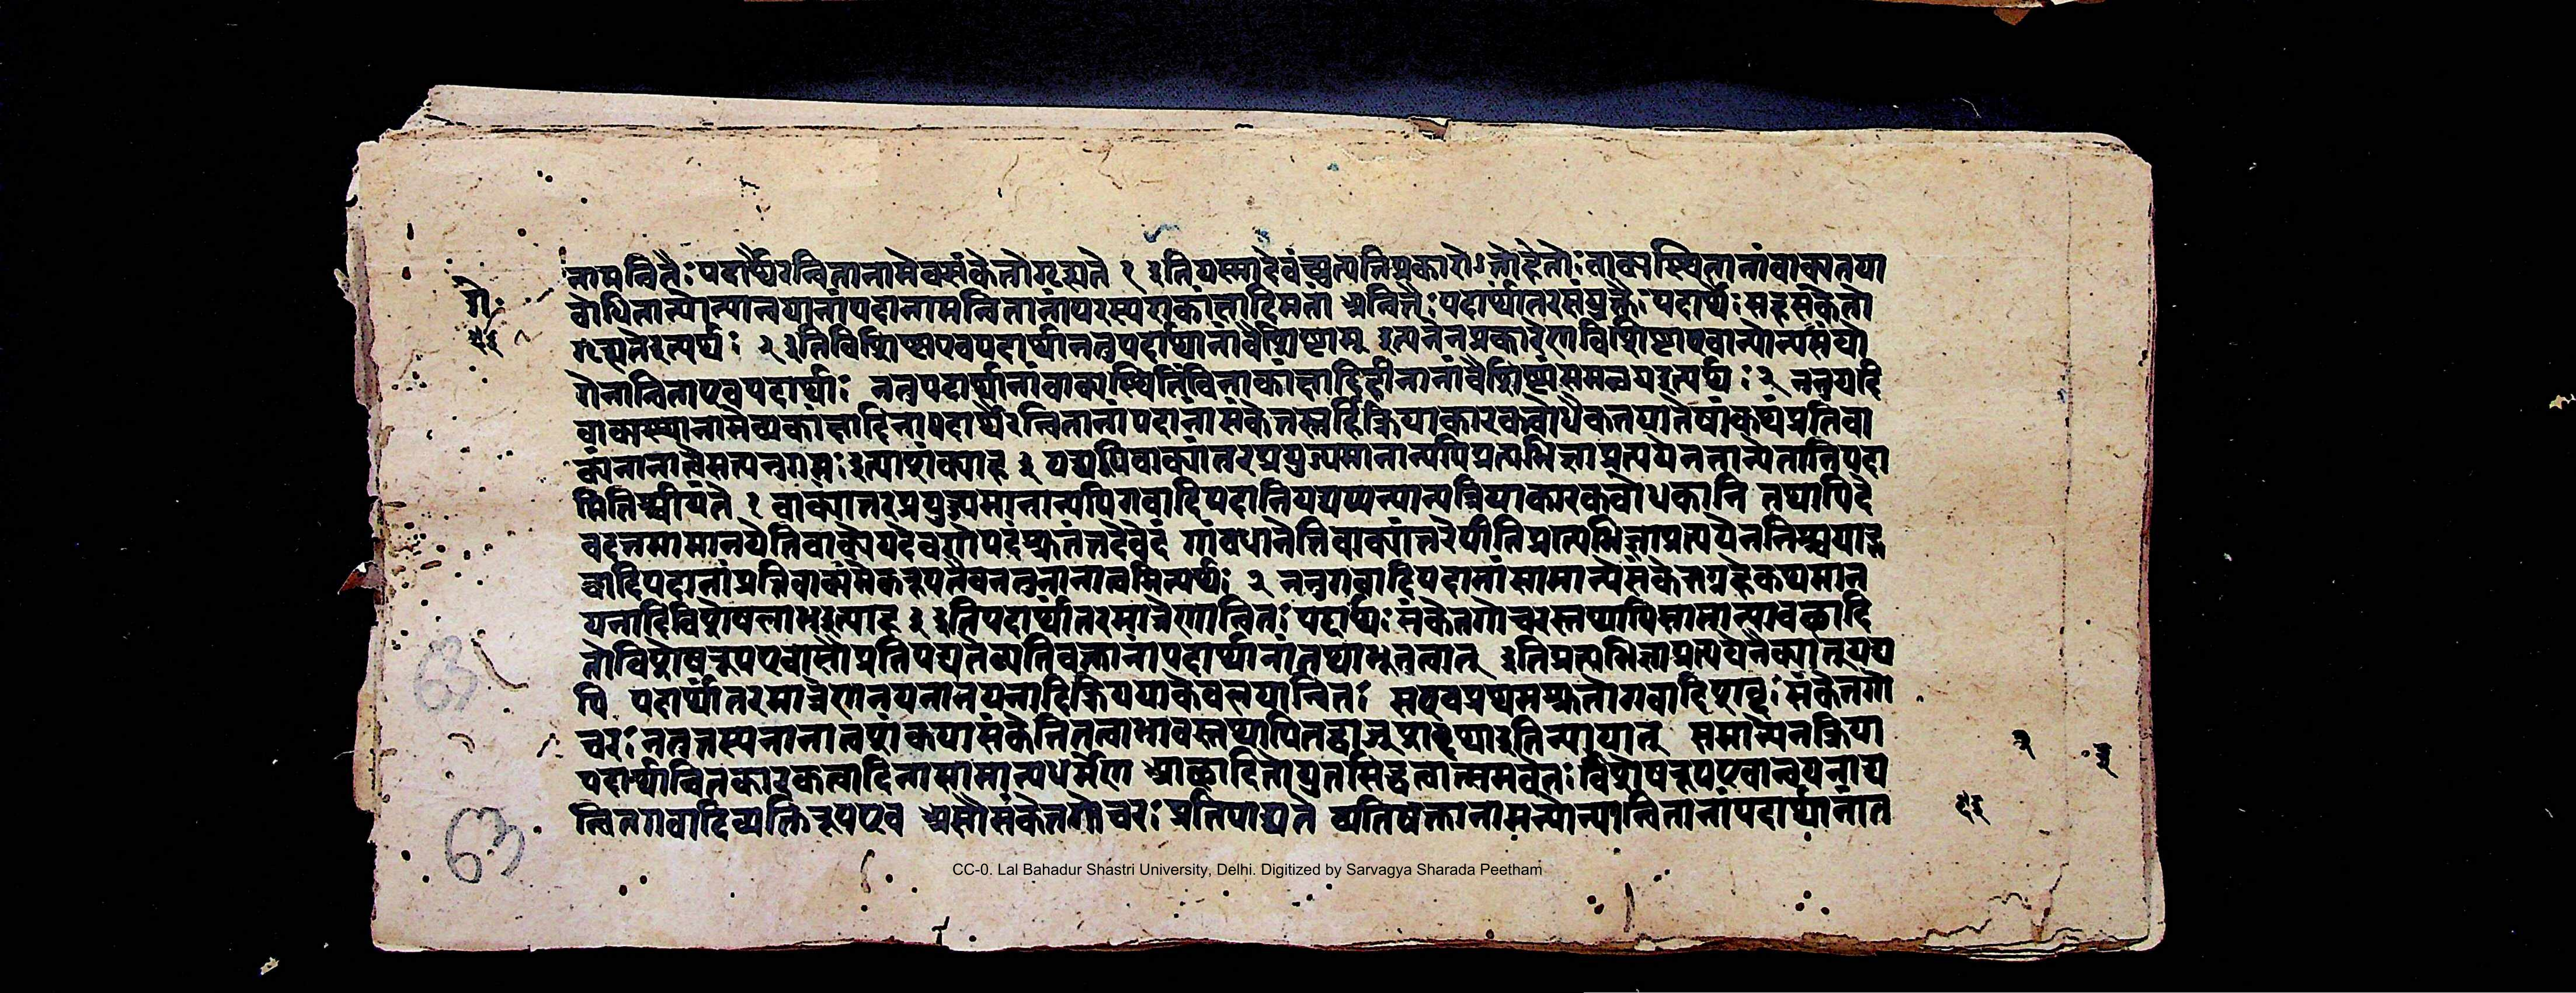 नामन्वितैः पदार्थैरन्वितानामेवसंकेतोगृह्यते १ इतियस्मादेवंव्युत्पत्तिप्रकारोऽतोहेतोः वाक्यस्थितानांवाक्यतया
बोधितान्योन्यान्वयानांपदानामन्वितानांपरस्पराकांक्षादिमतां अन्वितैः पदार्थांतरसंयुक्तैः पदार्थैः सहसंकेतो
गृह्यतेइत्यर्थः २ इतिविशिष्टाएवपदार्थानतुपदार्थानांवैशिष्ट्यम् इत्यनेनप्रकारेणविशिष्टाएवान्योन्यसंयो
गेनान्विताएवपदार्थाः नतुपदार्थानांवाक्यस्थितिंविनाकांक्षादिहीनानांवैशिष्ट्यंसमन्वयइत्यर्थः २ ननुयदि
वाक्यस्थानामेवाकांक्षादिनापदार्थैरन्वितानांपदानांसंकेतस्तर्हिक्रियाकारकबोधकतयातेषांकथंप्रतिवा
क्यंनानात्वंसत्यन्वगमः इत्याशंक्याह इ यद्यपिवाक्यांतरप्रयुज्यमानान्यपिप्रत्यभिज्ञाप्रत्ययेनतान्येतानिपदा
निनिश्चीयंते १ वाक्यान्तरप्रयुज्यमानान्यपिगवादिपदानियद्यप्यन्यान्यक्रियाकारकबोधकानि तथापिदे
वदत्तमामानयेतिवाक्येयदेवगोपदंश्रुतंतदेवेदं गांबधानेतिवाक्यांतरेपीतिप्रत्यभिज्ञाप्रत्ययेननिश्चयाद्ग
वादिपदानांप्रतिवाक्यमेकरूपतैवनतुनानात्वमित्यर्थः २ ननुगवादिपदानांसामान्येसंकेतग्रहेकथमान
यनादिविशेषलाभइत्याह इ इतिपदार्थांतरमात्रेणान्वितः पदार्थः संकेतगोचरस्तथापिसामान्यावच्छादि
तोविशेषरूपएवासौप्रतिपद्यतेव्यतिषक्तानांपदार्थानांतथाभूतत्वात् इतिप्रत्यभिज्ञाप्रत्ययेनैक्यात्यद्य
पि पदार्थांतरमात्रेणानयनानयनादिक्रिययाकेवलयान्वितः सएवप्रथमश्रुतोगवादिशब्दः संकेतगो
चरः नतत्तस्यनानात्वशंकयासंकेतितत्वाभावस्तथापि इतिन्यायात् समान्येनक्रिया
पदार्थान्वितकारकत्वादिनासामान्यधर्मेण आच्छादितोयुतसिद्धत्वात्समवेतः विशेषरूपएवानयनाद्य
न्वितगवादिव्यक्तिरूपएव असौसंकेतगोचरः प्रतिपाद्यते व्यतिषक्तानामन्योन्यान्वितानांपदार्थानांत
63
63
CC-0. Lal Bahadur Shastri University, Delhi. Digitized by Sarvagya Sharada Peetham